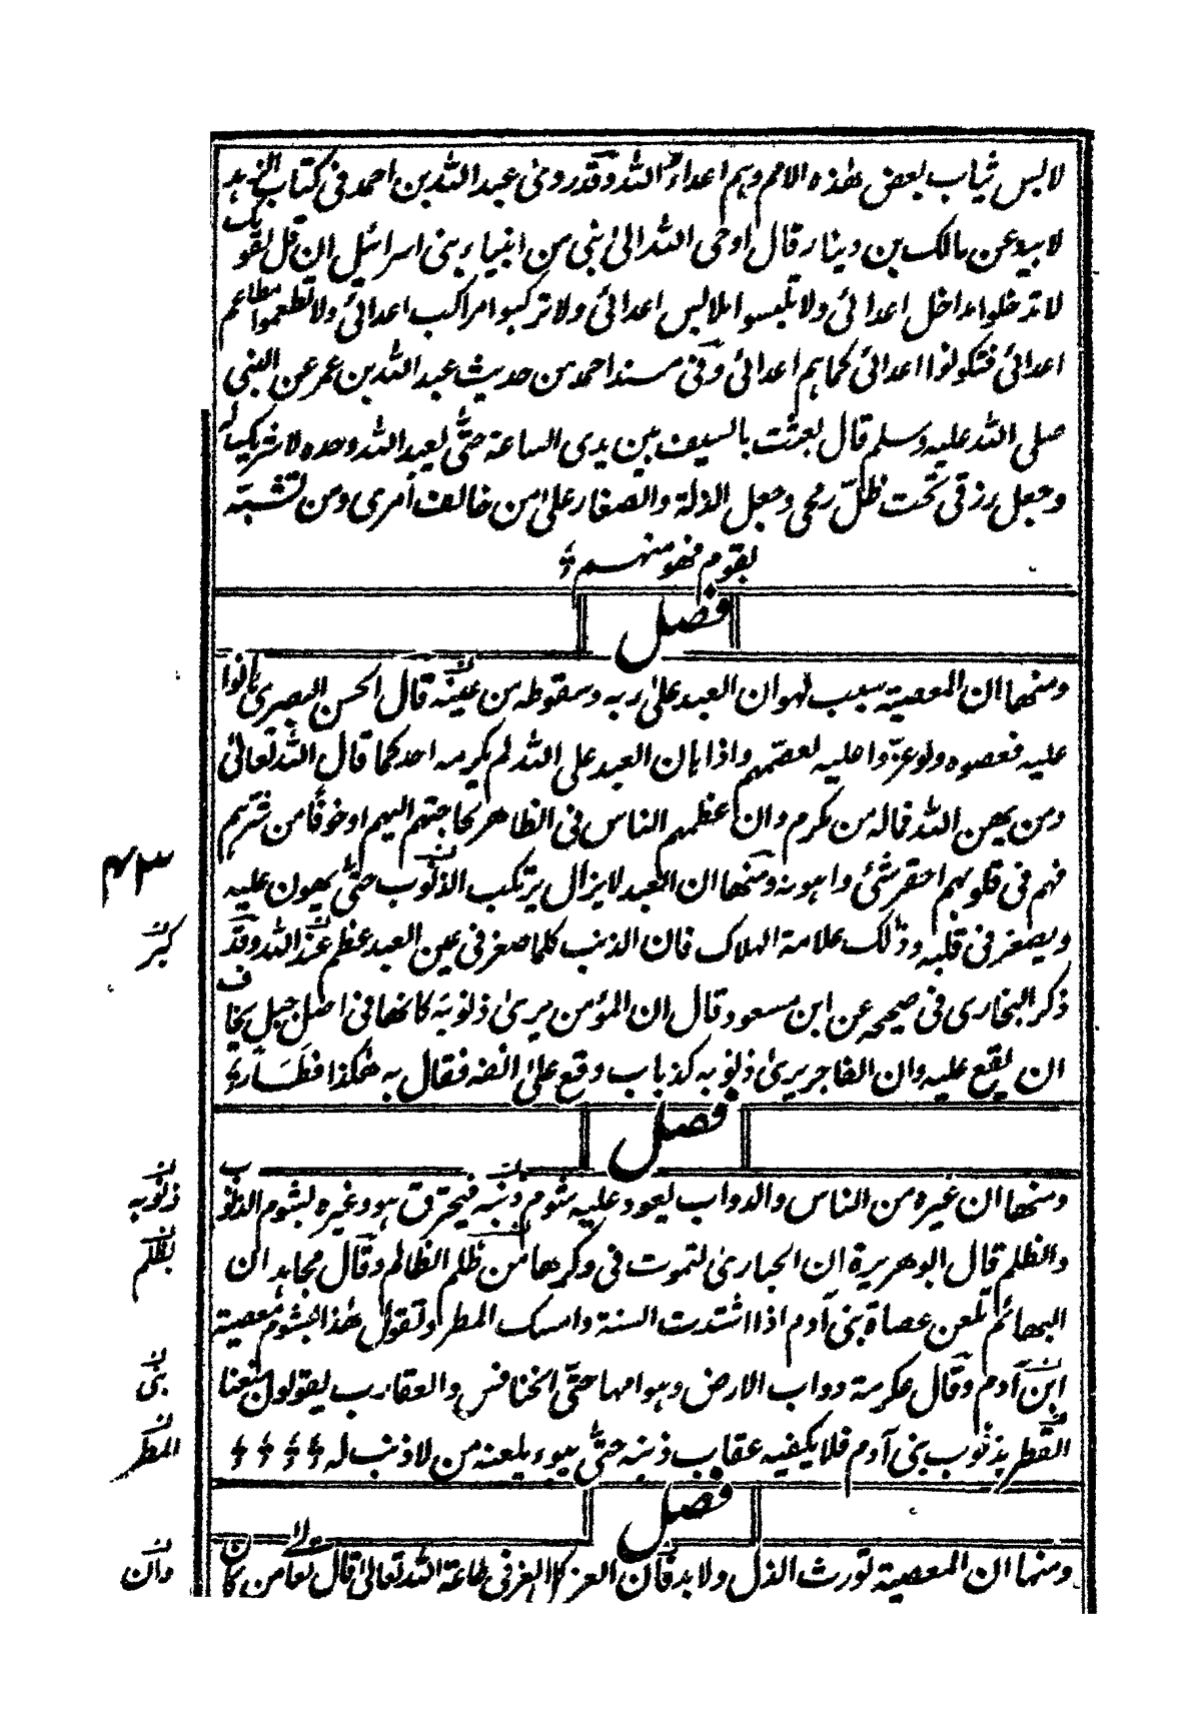 لابس ثياب بعض هذه الامم وهم اعداء الله وقد روى عبد الله بن احمد في كتاب الزهد
لابيه عن مالك بن دينار قال اوحى الله الى نبي من انبياء بني اسرائيل ان قل لقومك
لا تدخلوا مداخل اعدائي ولا تلبسوا ملابس اعدائي ولا تركبوا مراكب اعدائي ولا تطعموا مطاعم
اعدائي فتكونوا اعدائي كما هم اعدائي وفي مسند احمد من حديث عبد الله بن عمر عن النبي
صلى الله عليه وسلم قال بعثت بالسيف بين يدى الساعة حتى يعبد الله وحده لا شريك له
وجعل رزقي تحت ظلّ رمحي وجعل الذلة والصغار على من خالف أمرى ومن تشبّه
بقوم فهو منهم
فصل
ومنها ان المعصية سبب لهوان العبد على ربه وسقوطه من عينه قال الحسن البصرى هانوا
عليه فعصوه ولو عزّوا عليه لعصمهم واذا هان العبد على الله لم يكرمه احد كما قال الله تعالى
ومن يهن الله فماله من مكرم وان عظمهم الناس في الظاهر لحاجتهم اليهم او خوفًا من شرّهم
فهم في قلوبهم احقر شئ واهونه ومنها ان العبد لا يزال يرتكب الذنوب حتى يهون عليه
ويصغر في قلبه وذلك علامة الهلاك فان الذنب كلما صغر في عين العبد عظم عند الله وقد
ذكر البخارى في صحيحه عن ابن مسعود قال ان المؤمن يرى ذنوبه كانها في اصل جبل يخاف
ان يقع عليه وان الفاجر يرى ذنوبه كذباب وقع على انفه فقال به هكذا فطار
فصل
ومنها ان غيره من الناس والدواب يعود عليه شوم ذنبه فيحترق هو وغيره بشوم الذنوب
والظلم قال ابو هريرة ان الحبارى لتموت في وكرها من ظلم الظالم وقال مجاهد ان
البهائم تلعن عصاة بني آدم اذا اشتدت السنة وامسك المطر وتقول هذا بشوم معصية
ابن آدم وقال عكرمة دواب الارض وهوامها حتى الخنافس والعقارب يقولون منعنا
القطر بذنوب بني آدم فلا يكفيه عقاب ذنبه حتى يبوء بلعنه من لا ذنب له
فصل
ومنها ان المعصية تورث الذل ولا بد فان العز كل العز في طاعة الله تعالى قال تعا من كان
٤٣
كبر
ذنوبه
بظلم
بني
المطر
وان